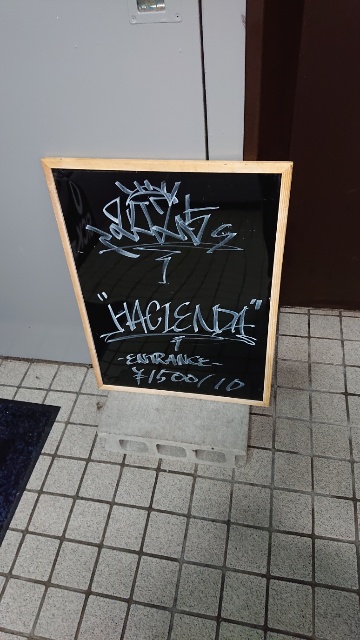 "HACIENDA"
-ENTRANCE-
¥1500/1D